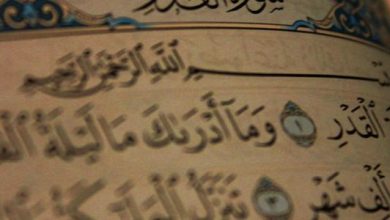 سُورَةُ القَدْرِ
بِسْمِ اللَّهِ الرَّحْمَٰنِ الرَّحِيمِ
الْقَدْرِ ١ وَمَآ أَدْرَىٰكَ مَا لَيْلَةُ
أَلْفِ شَهْرٍ ٣ تَنَزَّلُ